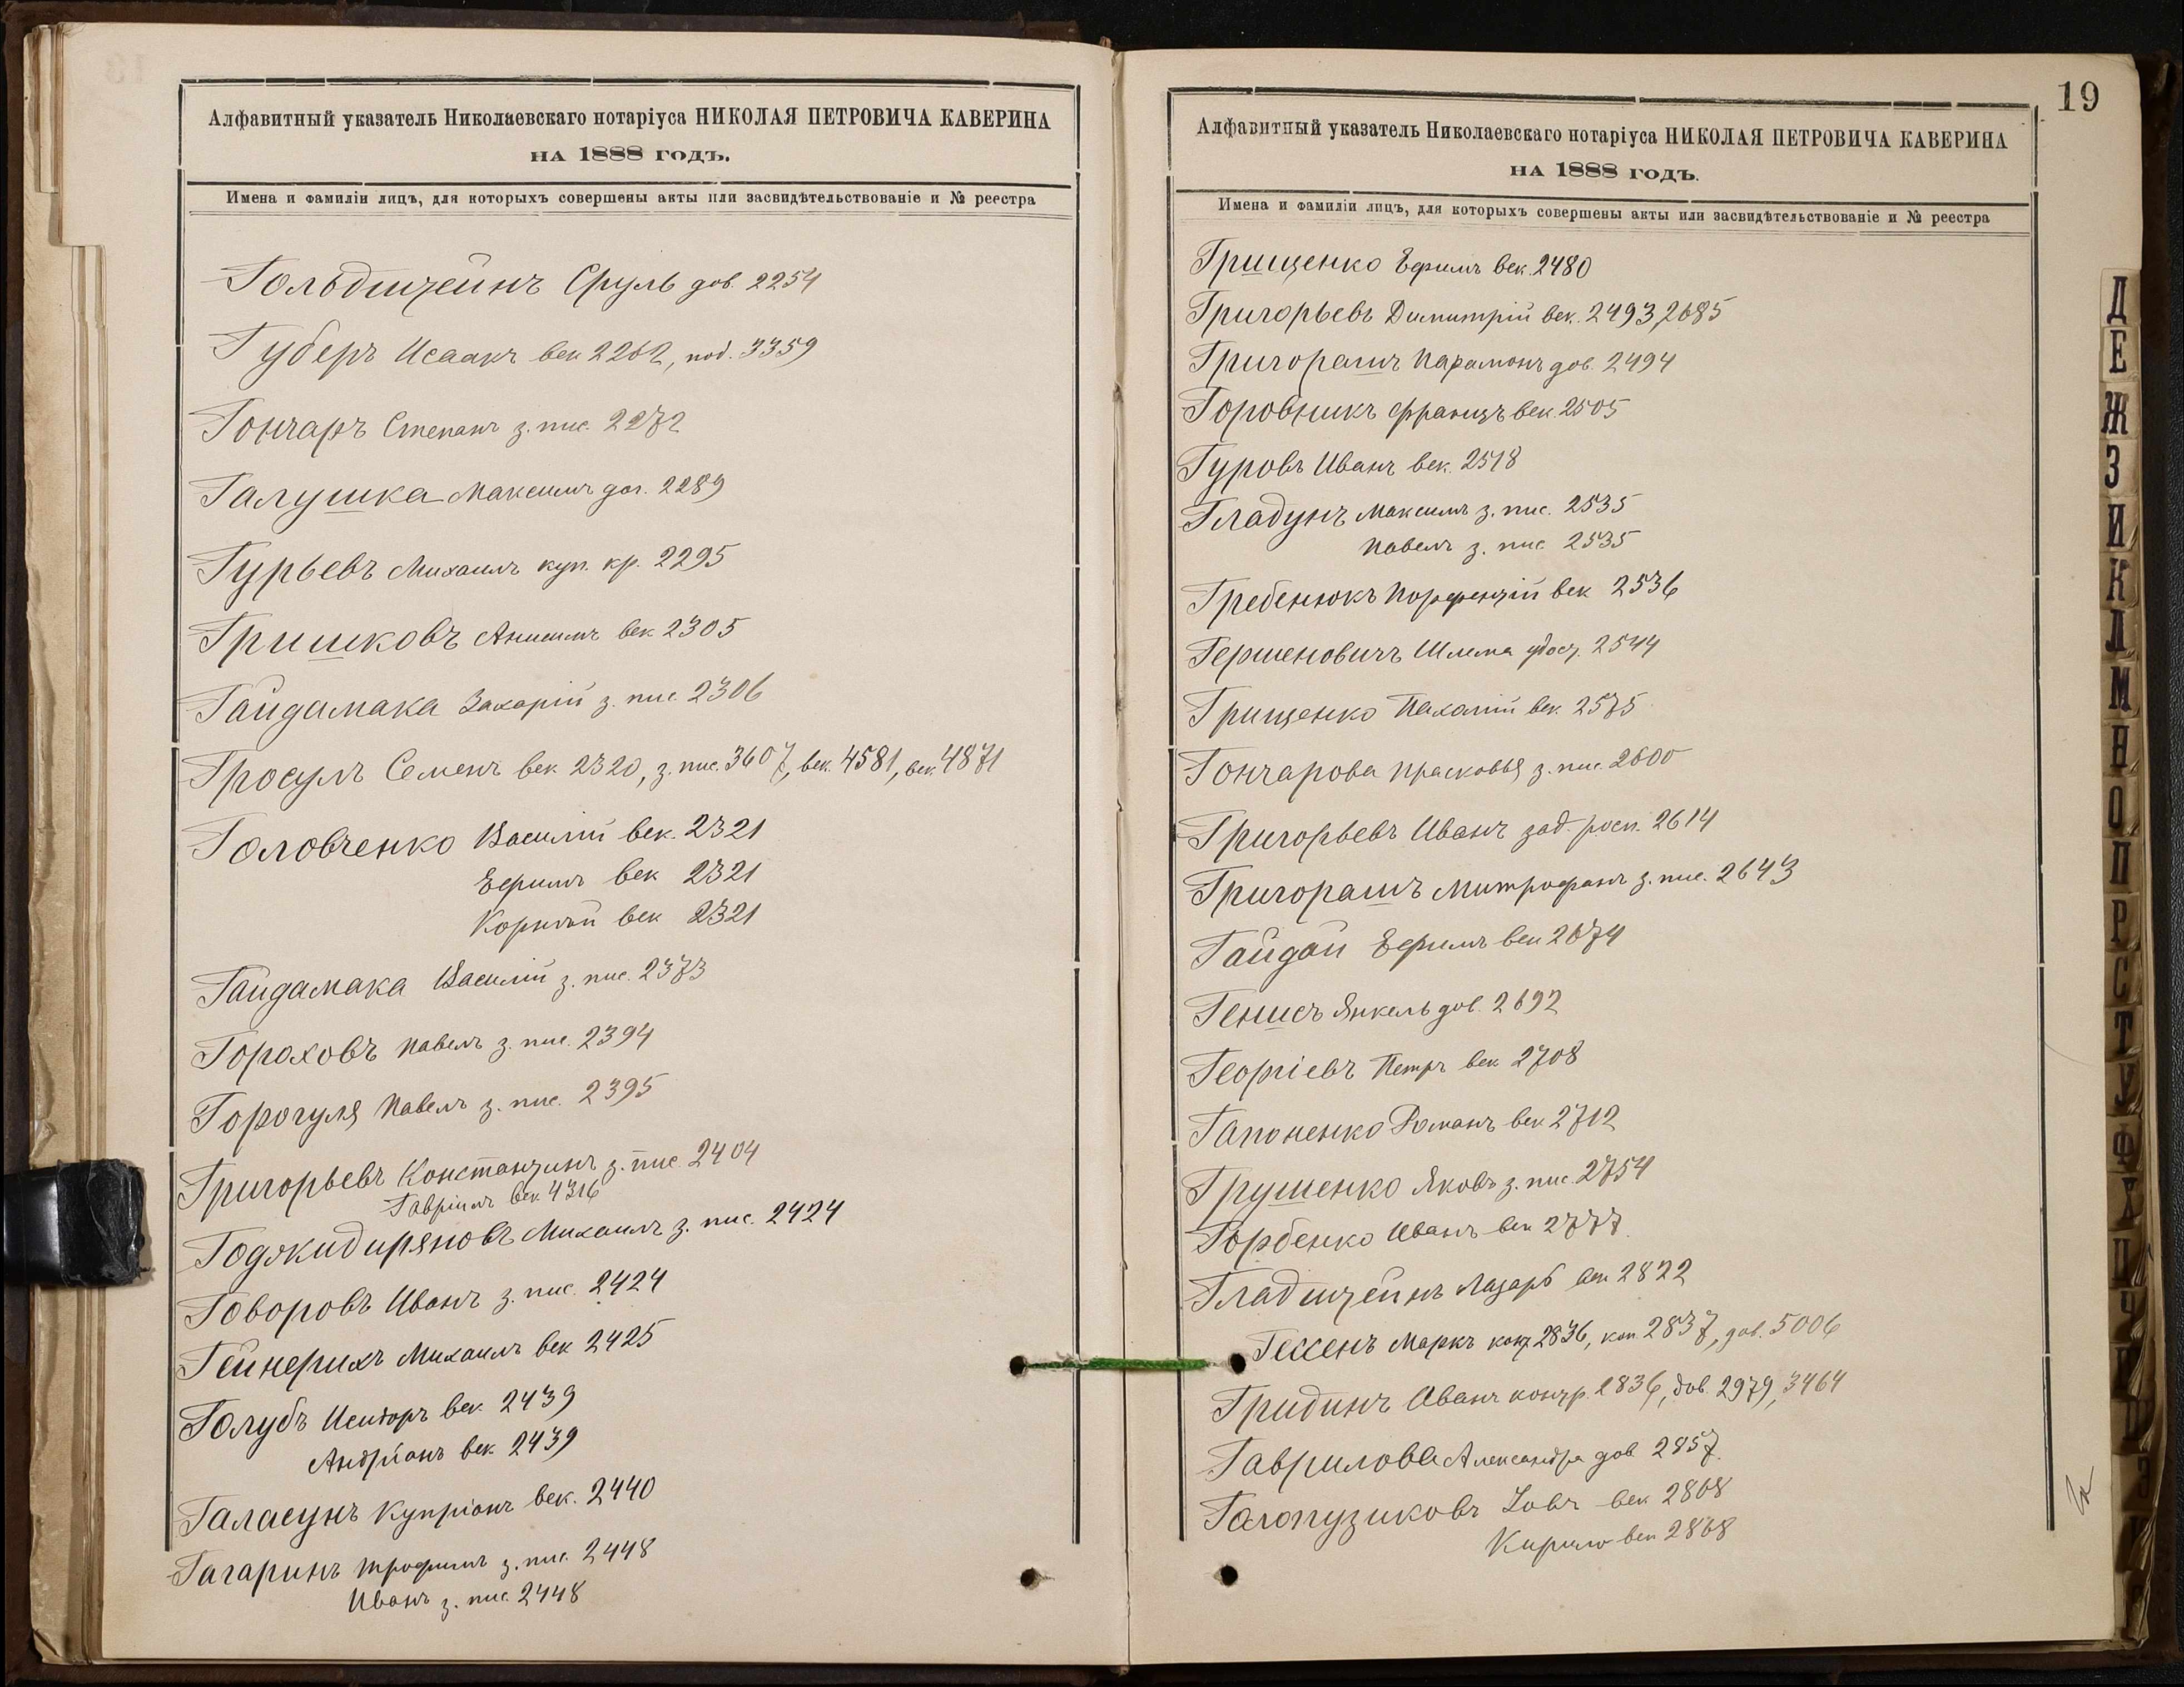 Алфавитный указатель Николаевскаго нотаріуса НИКОЛАЯ ПЕТРОВИЧА КАВЕРИНА
НА 1888 ГОДЪ.
Имена и фамиліи лицъ, для которыхъ совершены акты или засвидѣтельствованіе и № реестра
Гольдштейнъ Сруль дов. 2254
Губеръ Исаакъ век 2262, под. 3359
Гончаръ Степанъ з. пис. 2272
Галушка Максимъ дог. 2289
Гурьевъ Михаилъ куп. кр. 2295
Гришковъ Анисимъ век 2305
Гайдамака Захарій з. пис. 2306
Гросулъ Семенъ век 2320, з. пис. 3607, век. 4581, век. 4871
Головченко Василій век. 2321
Ефимъ век 2321
Корнѣй век 2321
Гайдамака Василій з. пис. 2373
Гороховъ Павелъ з. пис. 2394
Горогуля Павелъ з. пис. 2395
Григорьевъ Константинъ з. пис. 2404
Гавріилъ век 4316
Годжидиряновъ Михаилъ з. пис. 2424
Говоровъ Иванъ з. пис. 2424
Гейнерихъ Михаилъ век 2425
Голубъ Исидоръ век. 2439
Андріанъ век 2439
Галасунъ Купріанъ век. 2440
Гагаринъ Трофимъ з. пис. 2448
Иванъ з. пис. 2448
19
Алфавитный указатель Николаевскаго нотаріуса НИКОЛАЯ ПЕТРОВИЧА КАВЕРИНА
НА 1888 ГОДЪ.
Имена и фамиліи лицъ, для которыхъ совершены акты или засвидѣтельствованіе и № реестра
Грищенко Ефимъ век. 2480
Григорьевъ Димитрій век. 2493, 2685
Григорашъ Парамонъ дов. 2494
Горовникъ Францъ век. 2505
Гуровъ Иванъ век. 2518
Гладунъ Максимъ з. пис. 2535
Павелъ з. пис 2535
Гребенюкъ век 2536
Гершеновичъ Шлема 2544
Грищенко Пахомій век. 2575
Гончарова Прасковья з. пис. 2600
Григорьевъ Иванъ зад. росп. 2614
Григорашъ Митрофанъ з. пис. 2643
Гайдай Ефимъ век 2674
Генисъ Янкель дов. 2692
Георгіевъ Петръ век 2708
Гапоненко Романъ век 2712
Грушенко Яковъ з. пис. 2754
Горбенко Иванъ век 2777.
Гладштейнъ Лазарь век 2822
Гессенъ Маркъ конт. 2836, коп 2837, дов. 5006
Гридинъ Иванъ контр. 2836, дов. 2979, 3464
Гаврилова Александра дов 2857.
Голопузиковъ Іовъ век 2868
Кирило век 2868
Д
Е
Ж
З
И
К
Л
М
Н
О
П
Р
С
Т
У
Ф
Х
Ц
Ч